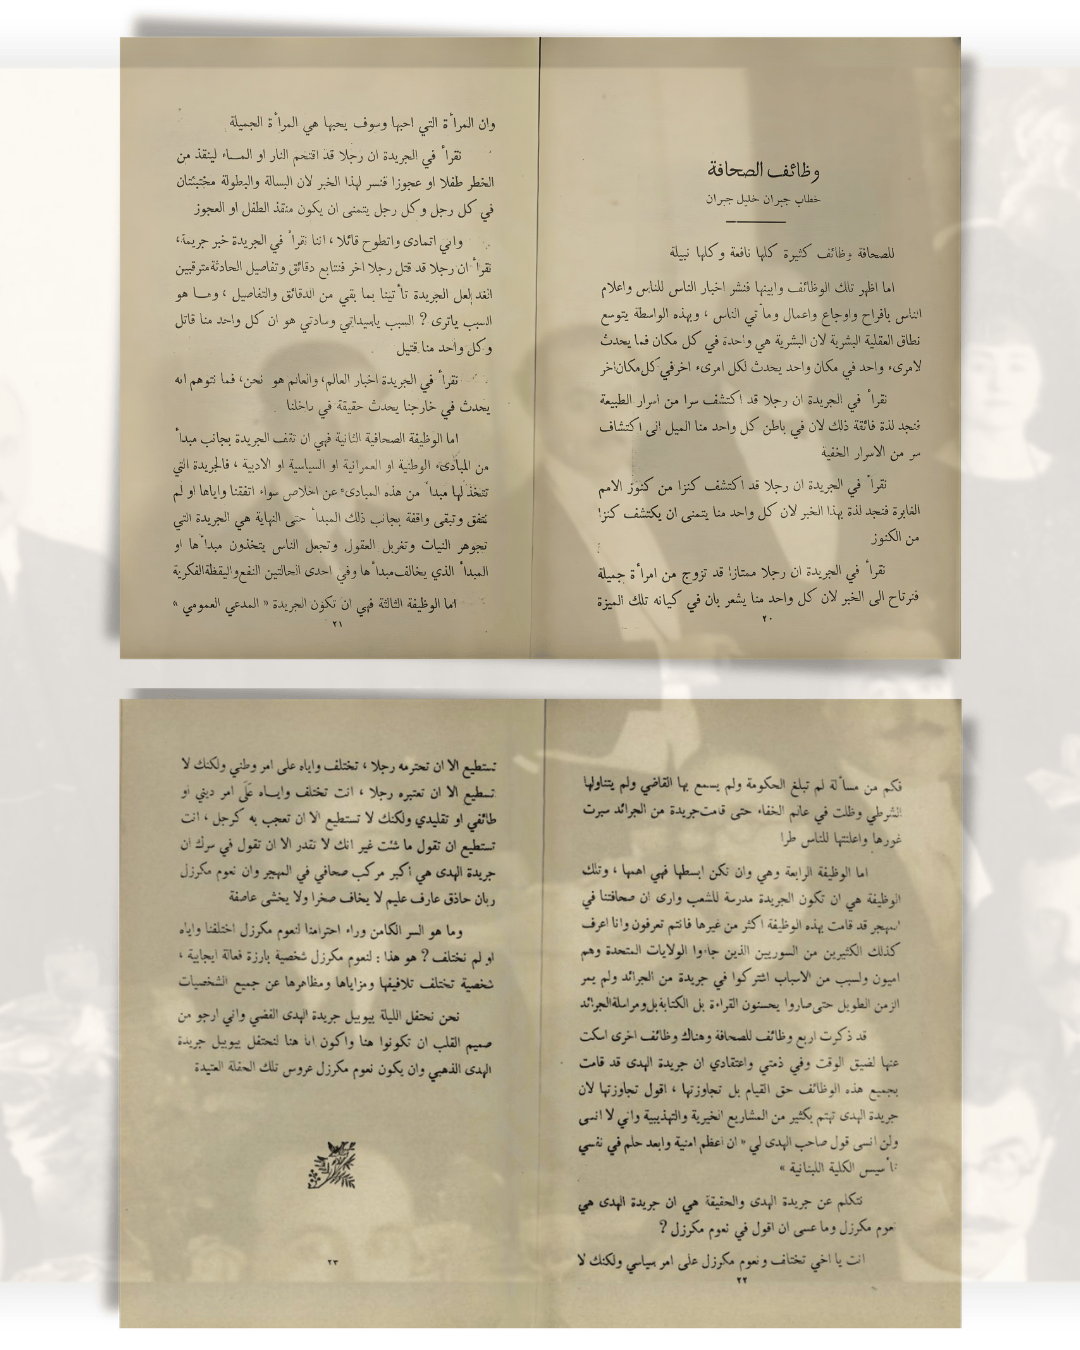 وظائف الصحافة
خطاب جبران خليل جبران
للصحافة وظائف كثيرة كلها نافعة وكلها نبيلة
اما اظهر تلك الوظائف وابينها فنشر اخبار الناس للناس واعلام
الناس بافراح واوجاع واعمال ومآتي الناس ، وبهذه الواسطة يتوسع
نطاق العقلية البشرية لان البشرية هي واحدة في كل مكان فما يحدث
لامرىء واحد في مكان واحد يحدث لكل امرىء اخر في كل مكان اخر
نقرأ في الجريدة ان رجلا قد اكتشف سرا من اسرار الطبيعة
فنجد لذة فائقة ذلك لان في باطن كل واحد منا الميل الى اكتشاف
سر من الاسرار الخفية
نقرأ في الجريدة ان رجلا قد اكتشف كنزا من كنوز الامم
الغابرة فنجد لذة بهذا الخبر لان كل واحد منا يتمنى ان يكتشف كنزا
من الكنوز
نقرأ في الجريدة ان رجلا ممتازا قد تزوج من امرأة جميلة
فنرتاح الى الخبر لان كل واحد منا يشعر بان في كيانه تلك الميزة
٢٠
وان المرأة التي احبها وسوف يحبها هي المرأة الجميلة
نقرأ في الجريدة ان رجلا قد اقتحم النار او المـاء لينقذ من
الخطر طفلا او عجوزا فنسر لهذا الخبر لان البسالة والبطولة مختبئتان
في كل رجل وكل رجل يتمنى ان يكون منقذ الطفل او العجوز
واني اتمادى واتطوح قائلا ، اننا نقرأ في الجريدة خبر جريمة،
نقرأ ان رجلا قد قتل رجلا اخر فنتابع دقائق وتفاصيل الحادثة مترقبين
الغد لعل الجريدة تأتينا بما بقي من الدقائق والتفاصيل ، ومـا هو
السبب ياترى ? السبب ياسيداتي وسادتي هو ان كل واحد منا قاتل
وكل واحد منا قتيل
نقرأ في الجريدة اخبار العالم، والعالم هو نحن، فما نتوهم انه
يحدث في خارجنا يحدث حقيقة في داخلنا
اما الوظيفة الصحافية الثانية فهي ان تقف الجريدة بجانب مبدأ
من المبادىء الوطنية او العمرانية او السياسية او الادبية ، فالجريدة التي
تتخذ لها مبدأ من هذه المبادىء عن اخلاص سواء اتفقنا واياها او لم
نتفق وتبقى واقفة بجانب ذلك المبدأ حتى النهاية هي الجريدة التي
تجوهر النيات وتغربل العقول وتجعل الناس يتخذون مبدأها او
المبدأ الذي يخالف مبدأها وفي احدى الحالتين النفع واليقظة الفكرية
اما الوظيفة الثالثة فهي ان تكون الجريدة « المدعي العمومي »
٢١
فكم من مسألة لم تبلغ الحكومة ولم يسمع بها القاضي ولم يتناولها
الشرطي وظلت في عالم الخفاء حتى قامت جريدة من الجرائد سبرت
غورها واعلنتها للناس طرا
اما الوظيفة الرابعة وهي وان تكن ابسطها فهي اهمها ، وتلك
الوظيفة هي ان تكون الجريدة مدرسة للشعب وارى ان صحافتنا في
المهجر قد قامت بهذه الوظيفة اكثر من غيرها فانتم تعرفون وانا اعرف
كذلك الكثيرين من السوريين الذين جاءوا الولايات المتحدة وهم
اميون ولسبب من الاسباب اشتركوا في جريدة من الجرائد ولم يمر
الزمن الطويل حتى صاروا يحسنون القراءة بل الكتابة بل ومراسلة الجرائد
قد ذكرت اربع وظائف للصحافة وهناك وظائف اخرى اسكت
عنها لضيق الوقت وفي ذمتي واعتقادي ان جريدة الهدى قد قامت
بجميع هذه الوظائف حق القيام بل تجاوزتها ، اقول تجاوزتها لان
جريدة الهدى تهتم بكثير من المشاريع الخيرية والتهذيبية واني لا انسى
ولن انسى قول صاحب الهدى لي « ان اعظم امنية وابعد حلم في نفسي
تأسيس الكلية اللبنانية »
نتكلم عن جريدة الهدى والحقيقة هي ان جريدة الهدى هي
نعوم مكرزل وما عسى ان اقول في نعوم مكرزل ?
انت يا اخي تختلف ونعوم مكرزل على امر سياسي ولكنك لا
٢٢
تستطيع الا ان تحترمه رجلا ، تختلف واياه على امر وطني ولكنك لا
تسطيع الا ان تعتبره رجلا ، انت تختلف وايـاه على امر ديني او
طائفي او تقليدي ولكنك لا تستطيع الا ان تعجب به كرجل ، انت
تستطيع ان تقول ما شئت غير انك لا تقدر الا ان تقول في سرك ان
جريدة الهدى هي أكبر مركب صحافي في المهجر وان نعوم مكرزل
ربان حاذق عارف عليم لا يخاف صخرا ولا يخشى عاصفة
وما هو السر الكامن وراء احترامنا لنعوم مكرزل اختلفنا واياه
او لم نختلف ? هو هذا : لنعوم مكرزل شخصية بارزة فعالة ايجابية ،
شخصية تختلف تلافيفها ومزاياها ومظاهرها عن جميع الشخصيات
نحن نحتفل الليلة بيوبيل جريدة الهدى الفضي واني ارجو من
صميم القلب ان تكونوا هنا واكون انا هنا لنحتفل بيوبيل جريدة
الهدى الذهبي وان يكون نعوم مكرزل عروس تلك الحفلة العتيدة
٢٣